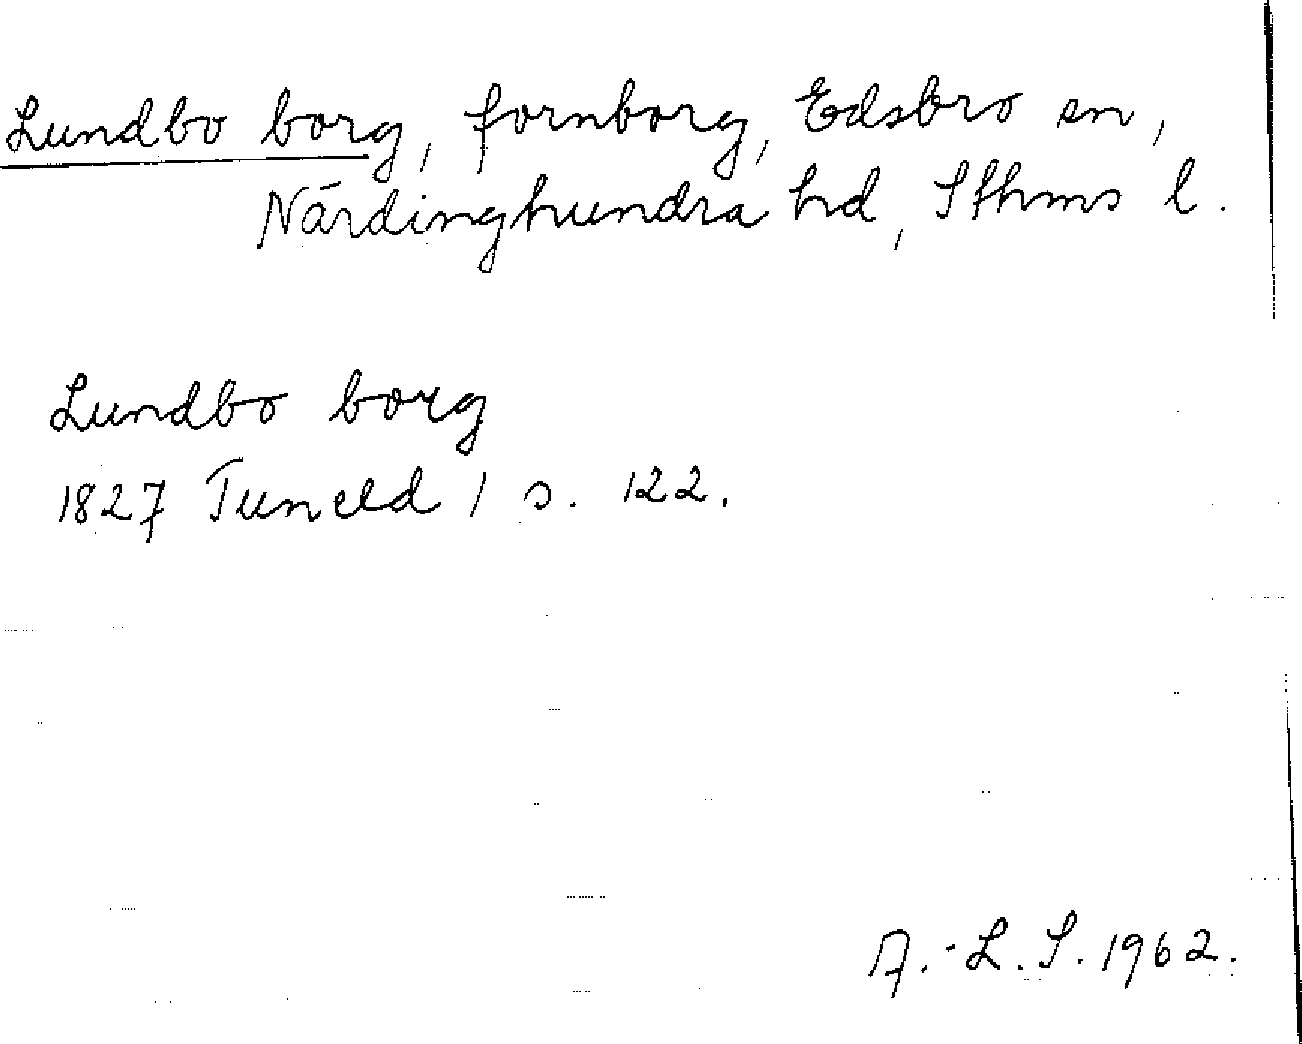 Lundbo borg, fornborg, Edsbro sn,
Närdinghundra hd, Sthms l.
Lundbo borg
1827 Tuneld 1 s. 122.
A.-L. S. 1962.